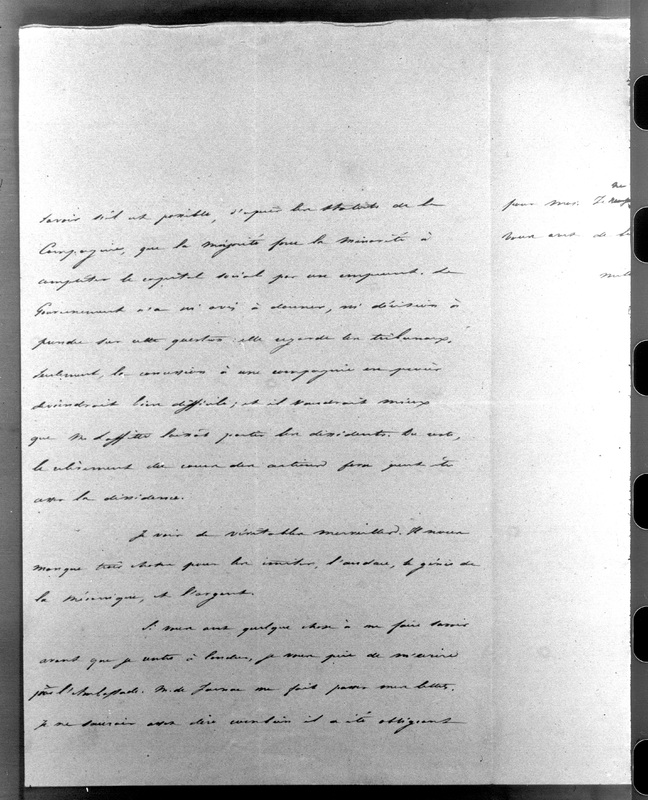 savoir s'il est possible, d'après les statuts de la
Compagnie, que la majorité force la minorité à
compléter le capital social par un emprunt. Le
Gouvernement n'a ni avis à donner, ni décision à
prendre sur cette question : elle regarde les tribunaux.
Seulement, la concession à une compagnie en procès
deviendrait bien difficile ; et il vaudrait mieux
que M. Laffitte laissât partir les dissidents. Du reste,
le cours des actions fera peut-être
cesser la dissidence.
Je vois de véritables merveilles. Il nous
manque trois choses pour les imiter, l'audace, le génie de
la mécanique, et l'argent.
Si vous avez quelque chose à me faire savoir
avant que je rentre à Londres, je vous prie de m'écrire
à l'Ambassade. M. de Jarnac me fait passer mes lettres.
Je ne saurais vous dire combien il a été obligeant
ne
pour moi.
Vous avez de la